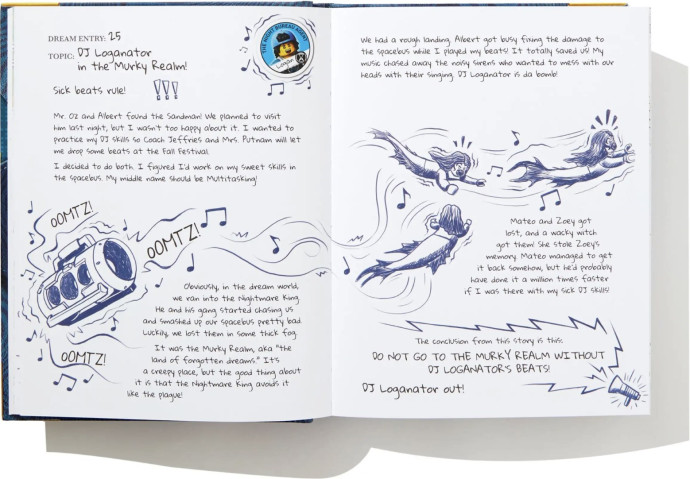 DREAM ENTRY: 25
TOPIC: DJ Loganator
in the Murky Realm!
THE NIGHT BUREAU AGENT
Logan
Sick beats rule! !!!
Mr. Oz and Albert found the Sandman! We planned to visit
him last night, but I wasn't too happy about it. I wanted to
practice my DJ skills so Coach Jeffries and Mrs. Putnam will let
me drop some beats at the Fall Festival.
I decided to do both. I figured I'd work on my sweet skills in
the spacebus. My middle name should be Multitasking!
OOMTZ!
OOMTZ!
OOMTZ!
Obviously, in the dream world,
we ran into the Nightmare King.
He and his gang started chasing us
and smashed up our spacebus pretty bad.
Luckily, we lost them in some thick fog.
It was the Murky Realm, aka "the
land of forgotten dreams." It's
a creepy place, but the good thing about
it is that the Nightmare King avoids it
like the plague!
We had a rough landing. Albert got busy fixing the damage to
the spacebus while I played my beats! It totally saved us! My
music chased away the noisy sirens who wanted to mess with our
heads with their singing. DJ Loganator is da bomb!
Mateo and Zoey got
lost, and a wacky witch
got them! She stole Zoey's
memory. Mateo managed to get
it back somehow, but he'd probably
have done it a million times faster
if I was there with my sick DJ skills!
The conclusion from this story is this:
DO NOT GO TO THE MURKY REALM WITHOUT
DJ LOGANATOR'S BEATS!
DJ Loganator out!